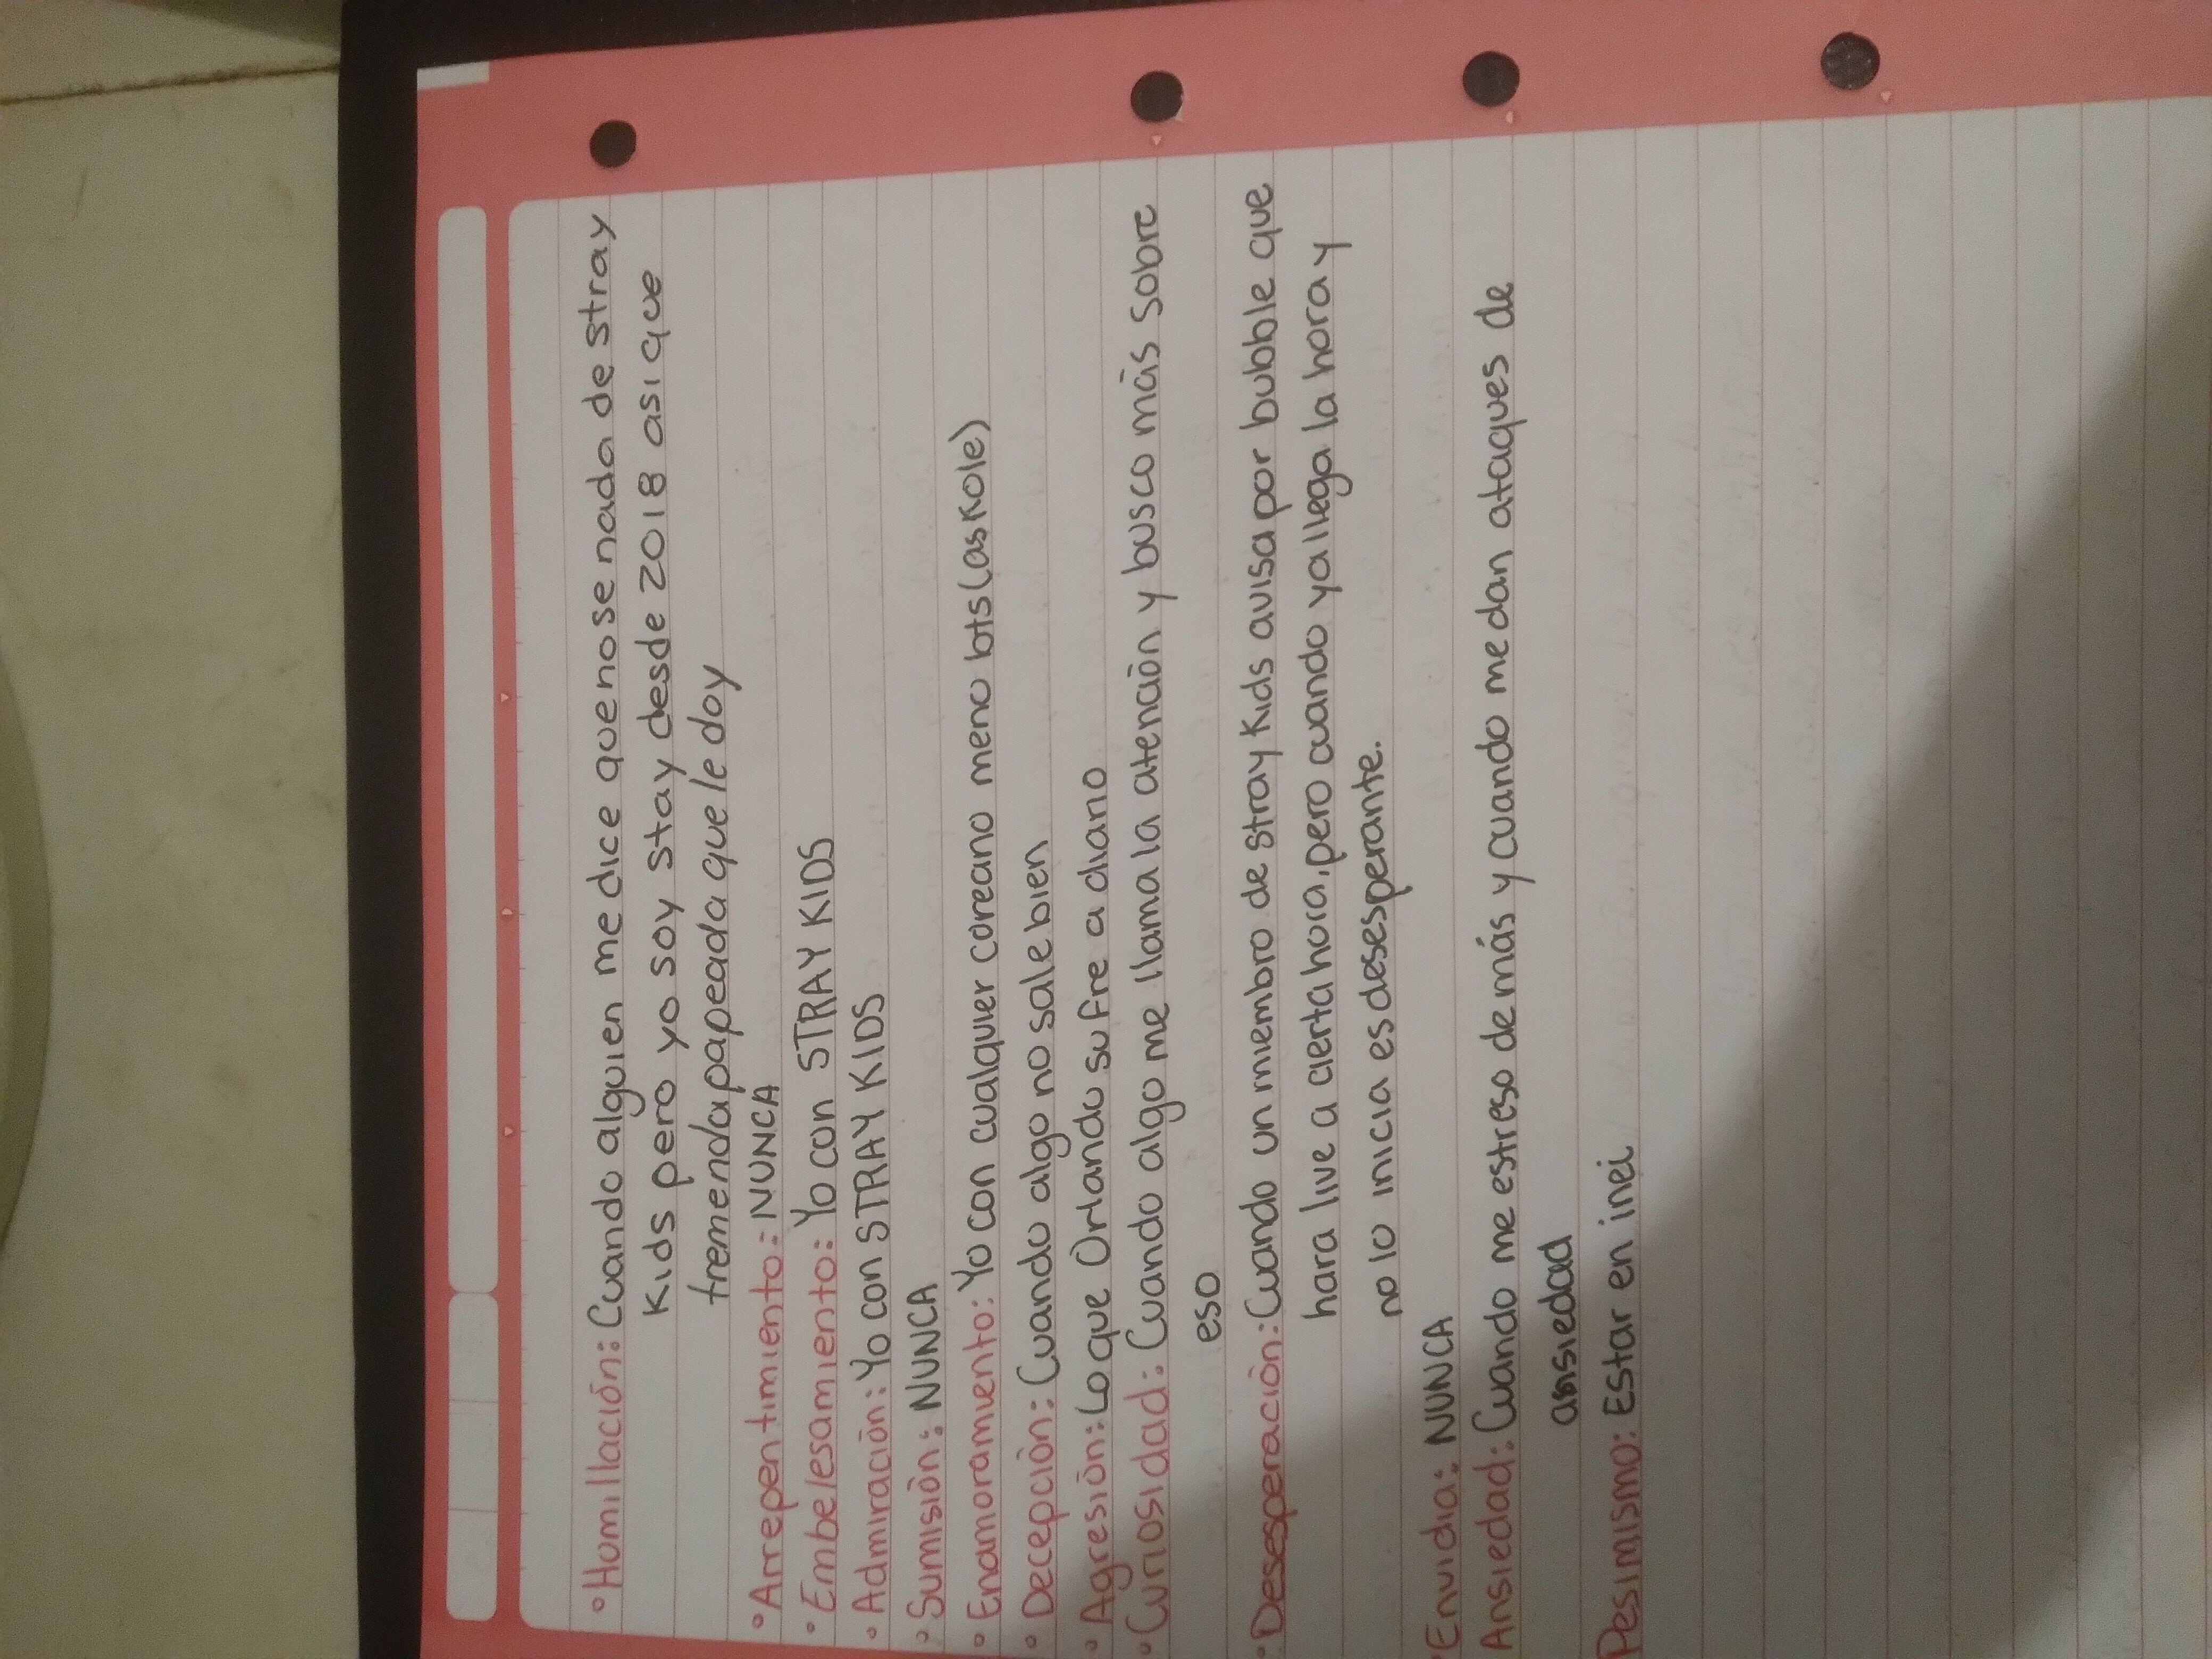 ° Humillación: Cuando alguien me dice que no se nada de stray
Kids pero yo soy stay desde 2018 asi que
tremenda papeada que le doy
° Arrepentimiento: NUNCA
° Embelesamiento: Yo con STRAY KIDS
° Admiración: Yo con STRAY KIDS
° Sumisión: NUNCA
° Enamoramiento: Yo con cualquier coreano meno bts (askole)
° Decepción: Cuando algo no sale bien
° Agresión: Lo que Orlando sufre a diario
° Curiosidad: Cuando algo me llama la atención y busco más sobre
eso
° Desesperación: Cuando un miembro de stray Kids avisa por bubble que
hara live a cierta hora, pero cuando ya llega la hora y
no lo inicia es desesperante.
° Envidia: NUNCA
Ansiedad: Cuando me estreso de más y cuando me dan ataques de
ansiedad
Pesimismo: Estar en inei